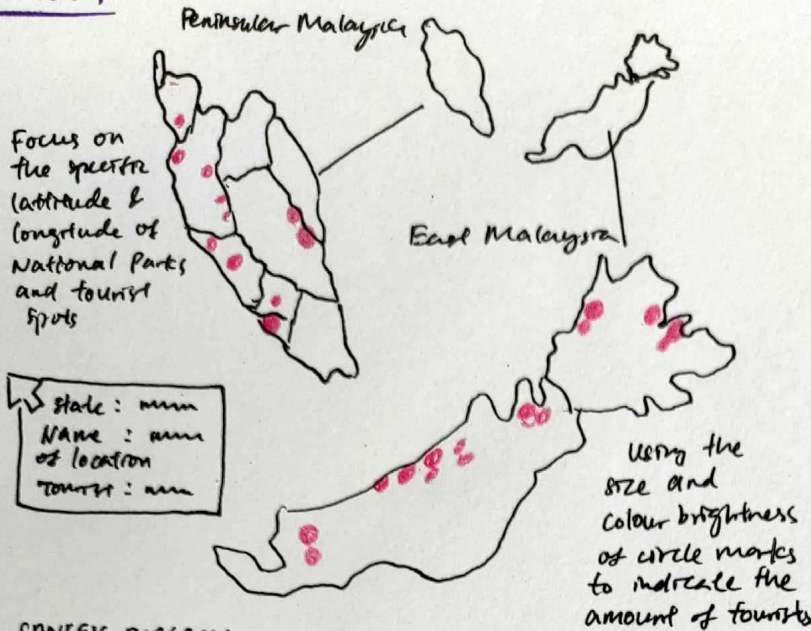 Peninsular Malaysia
Focus on
the specific
lattitude &
longitude of
National Parks
and tourist
spots
East Malaysia
State :
Name :
of location
Tourist :
Using the
size and
colour brightness
of circle marks
to indicate the
amount of tourists